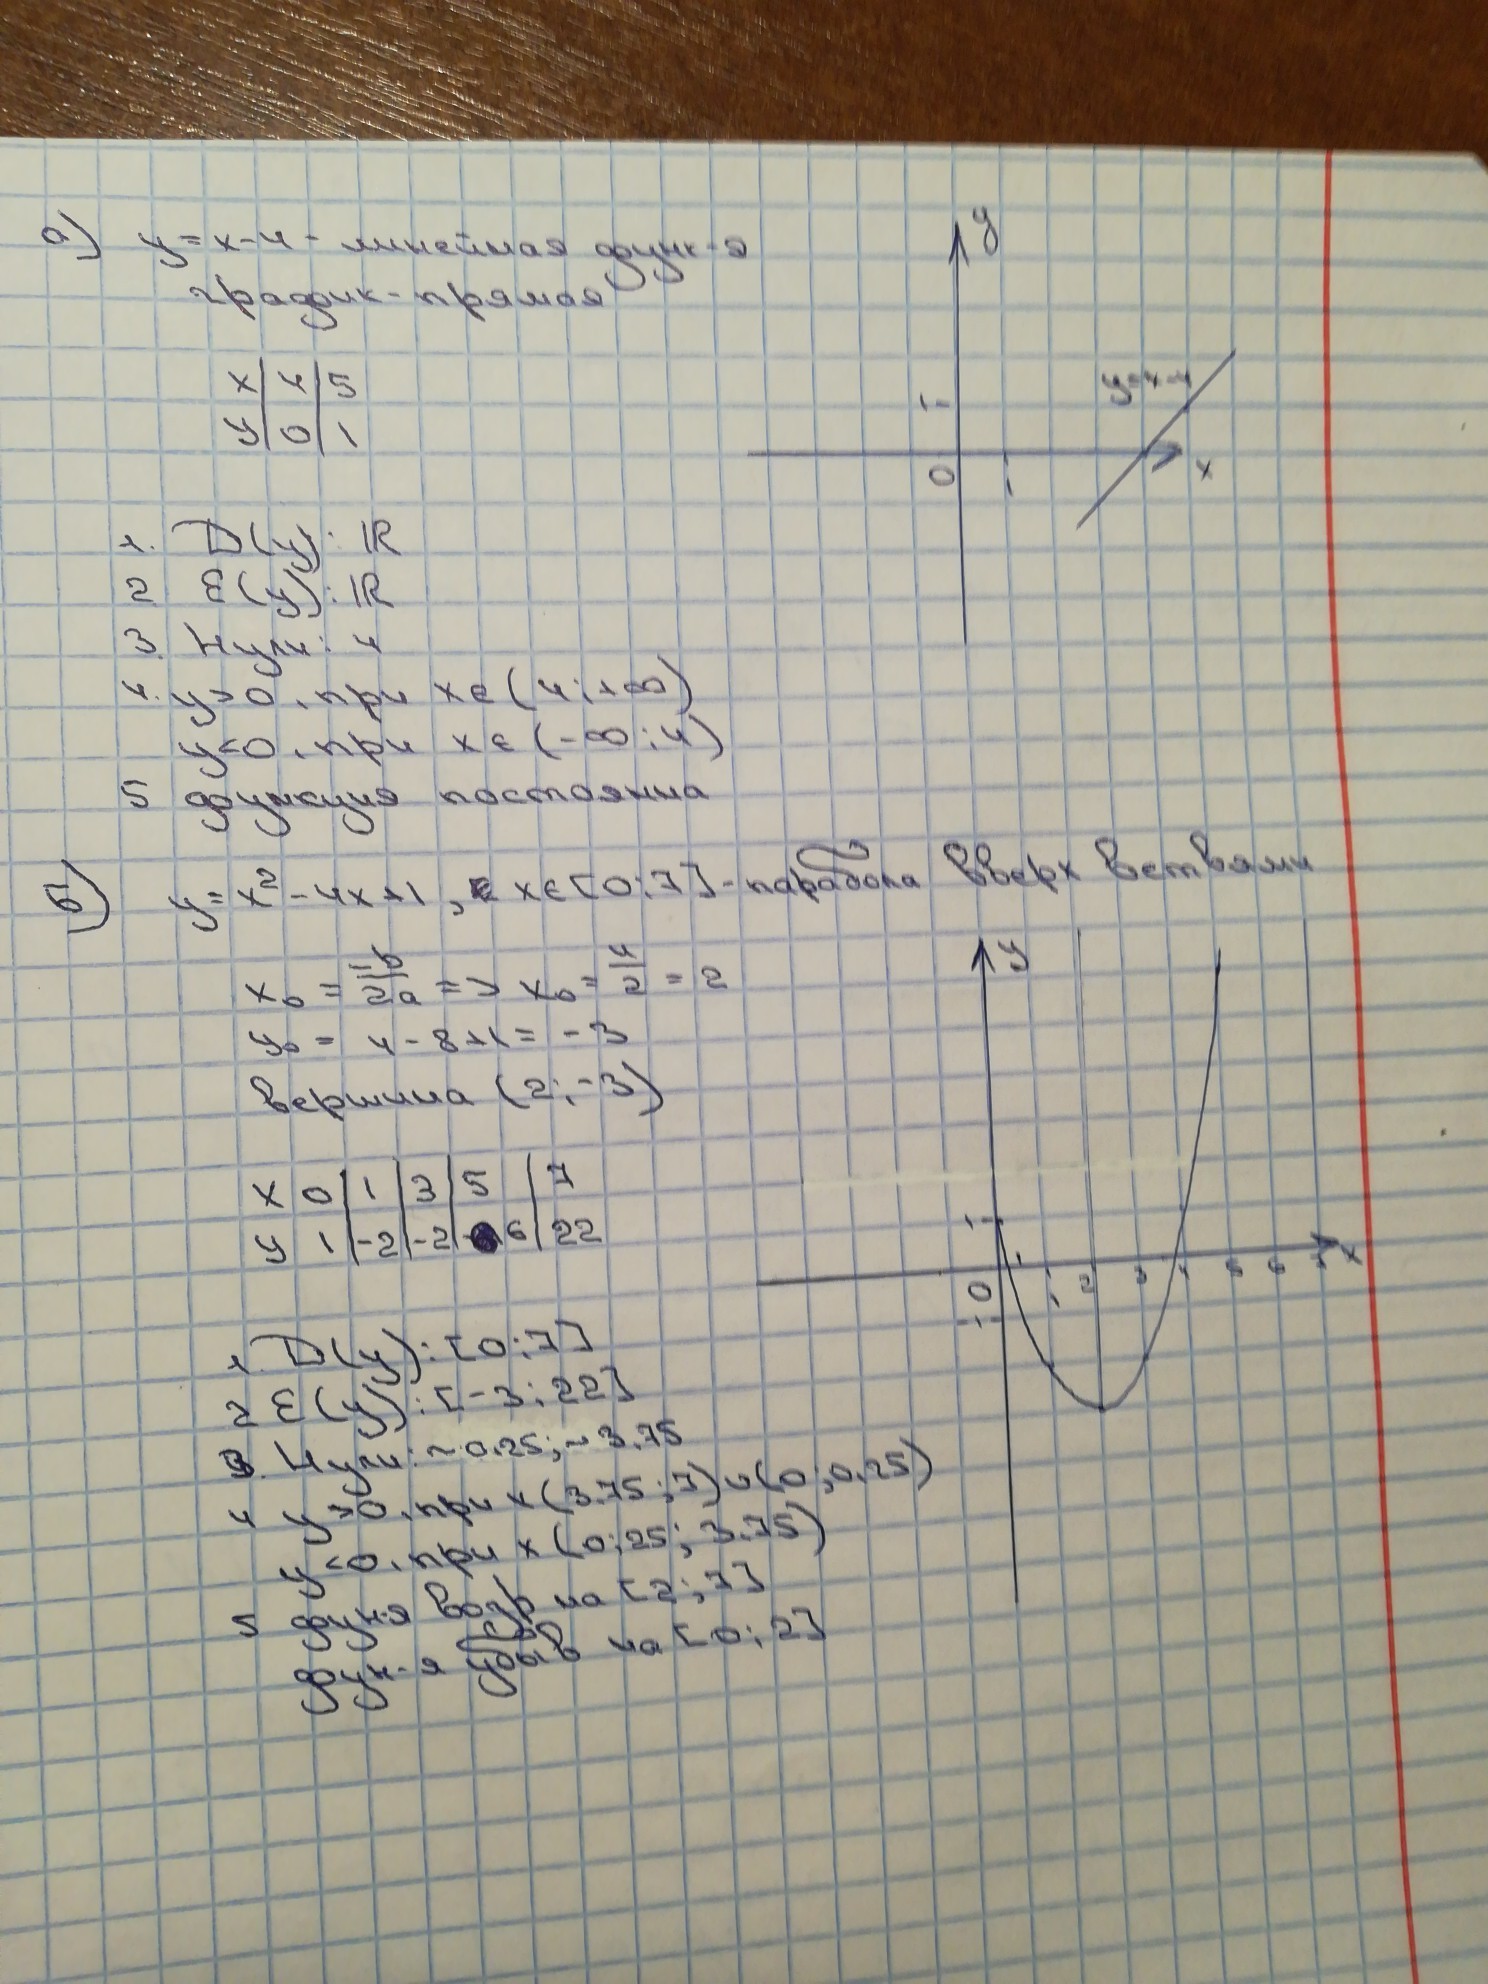 а) y = x-4 - линейная функ-я
график-прямая
x 4 5
y 0 1
y
y=x-4
1
0 1 x
1. D(y): ℝ
2 E(y): ℝ
3. Нули: 4
4. y>0, при x∈(4;+∞)
y<0, при x∈(-∞;4)
5 функция постоянна
б) y=x²-4x+1, x∈[0;7]-парабола вверх ветвями
x₀ = -b/2a => x₀ = 4/2 = 2
y₀ = 4-8+1= -3
Вершина (2;-3)
x 0 1 3 5 7
y 1 -2 -2 6 22
y
1
0 1 2 3 4 5 6 7 x
-1
1. D(y): [0;7]
2 E(y): [-3;22]
3. Нули: ~0.25; ~3.75
4 y>0, при x(3.75;7)∪(0;0.25)
y<0, при x(0;25; 3.75)
5 фун-я возр на [2;7]
фун-я убыв на [0;2]